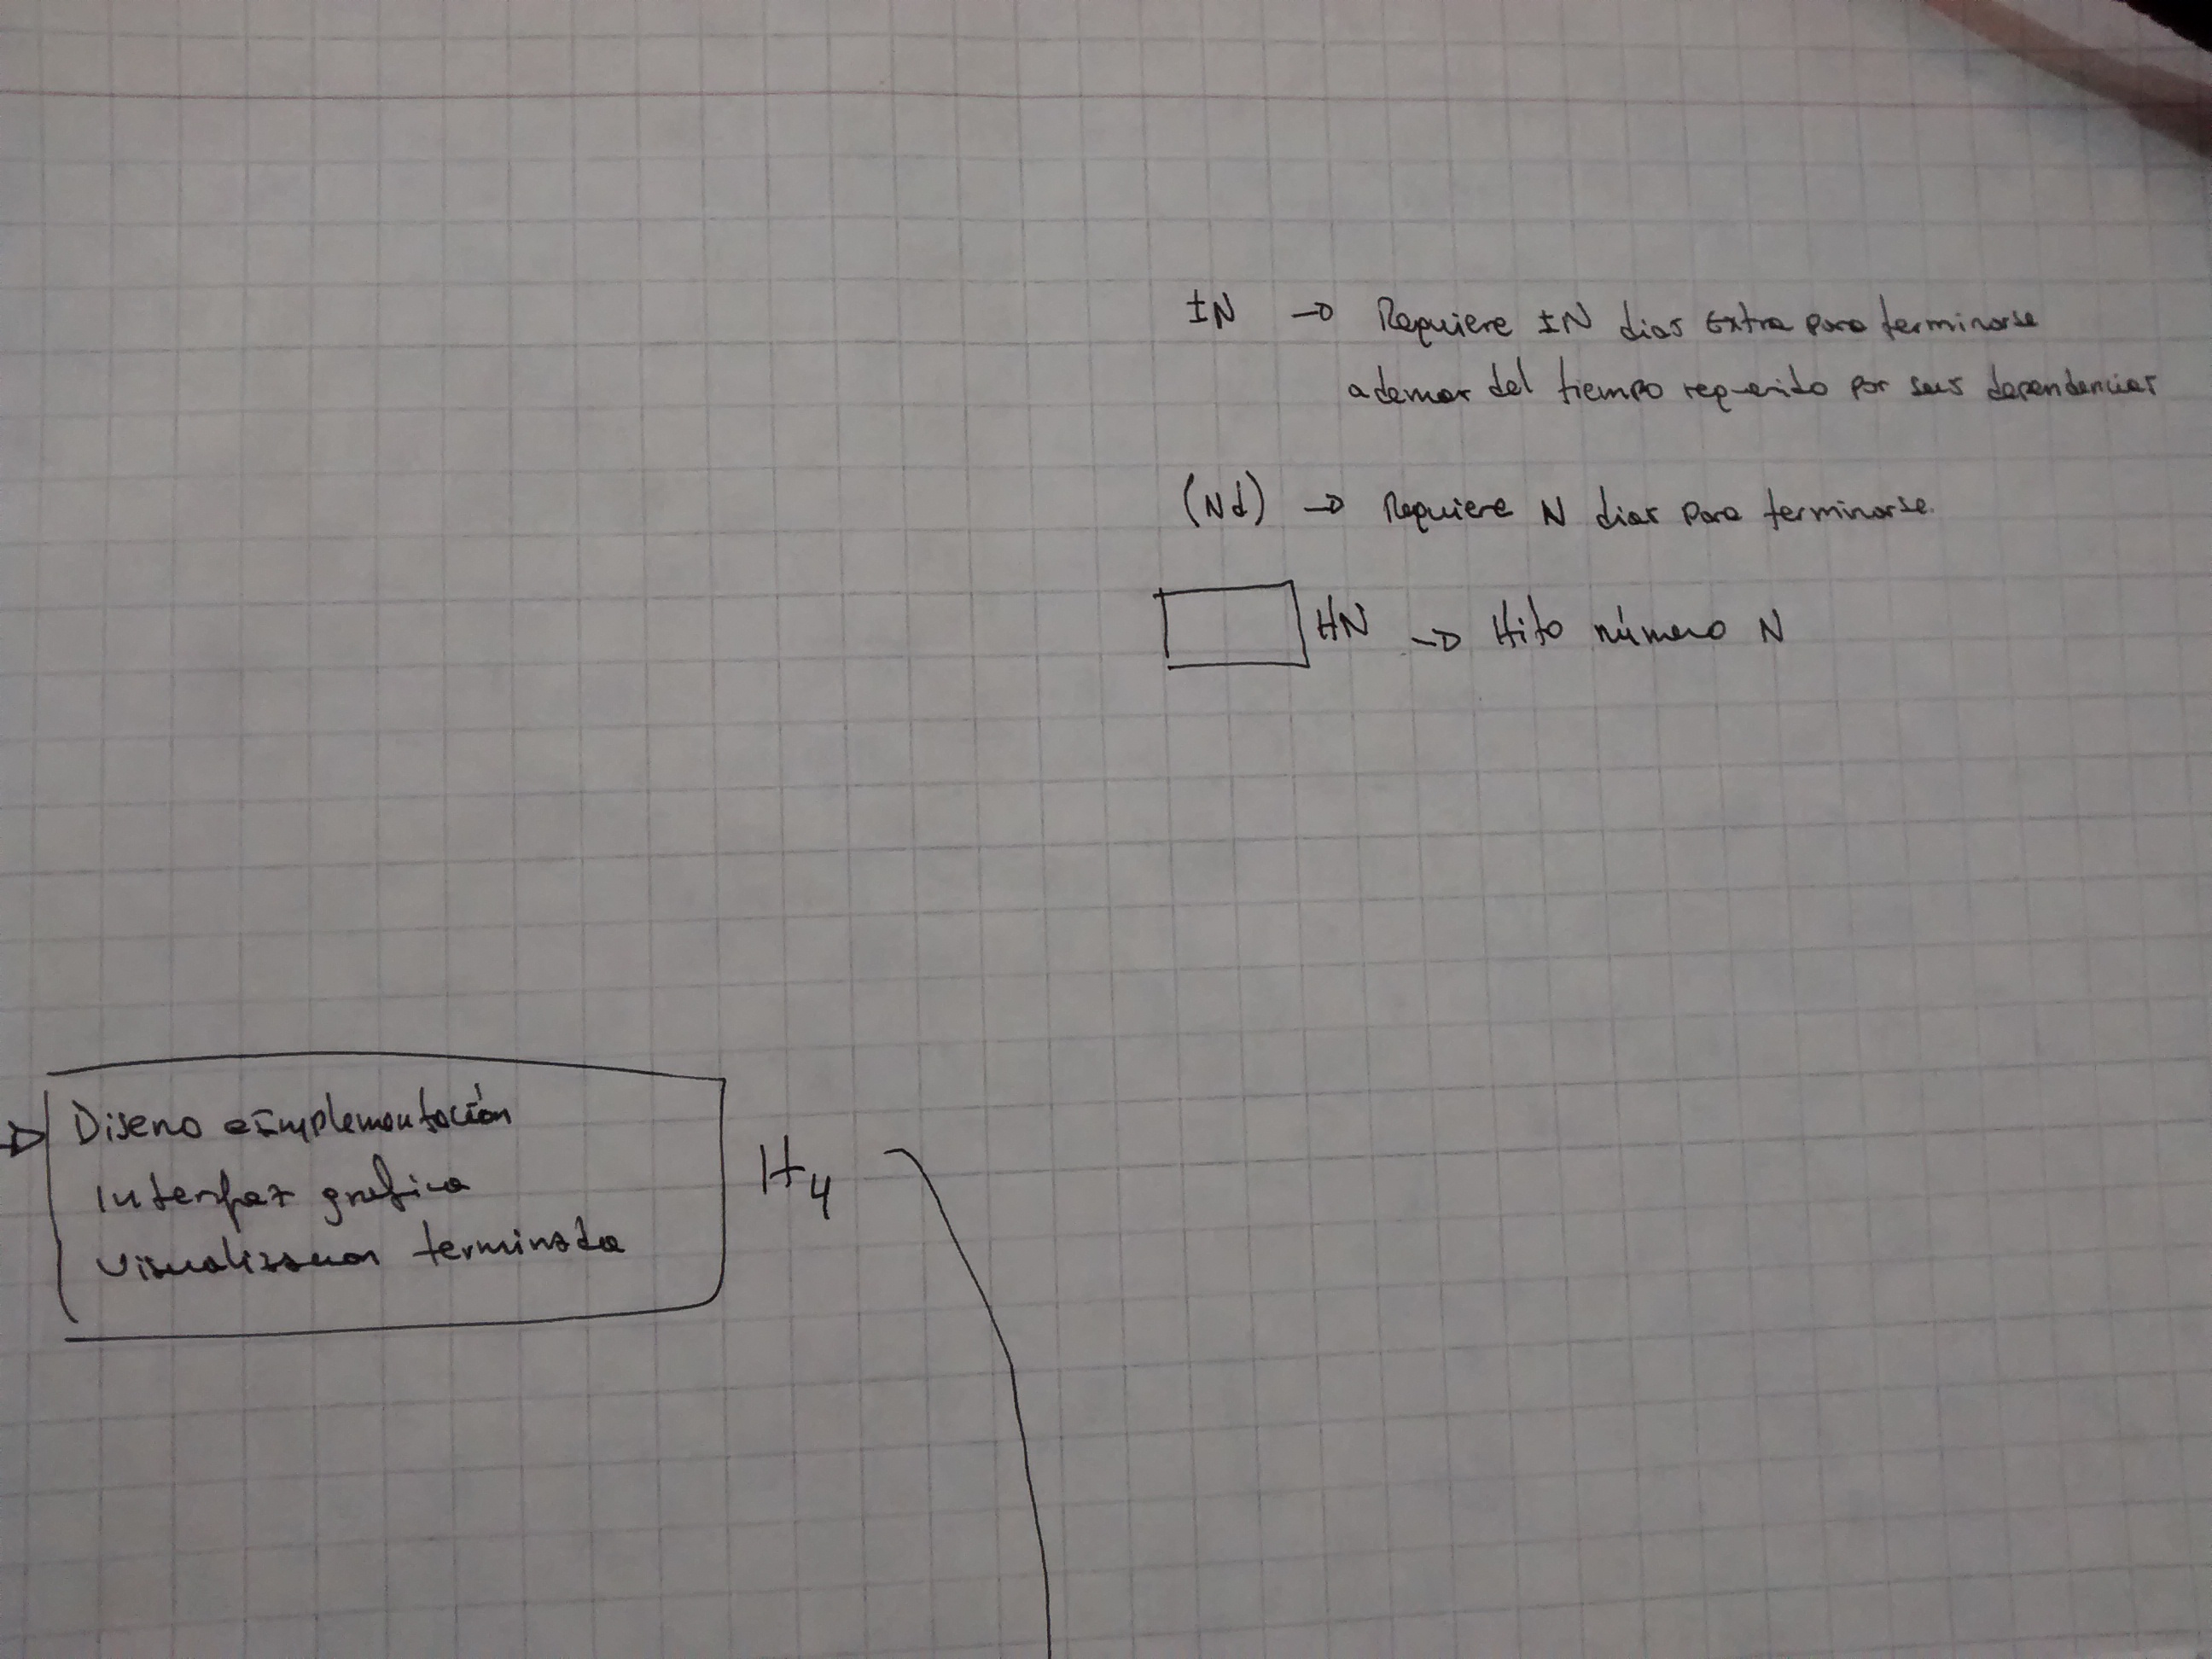 IN → Requiere IN dias extra para terminarse
ademas del tiempo requerido por sus dependencias
(Nd) → Requiere N dias para terminarse.
HN → Hito número N
Diseno e Implementación
Interfaz grafica
visualizacion terminada
H4